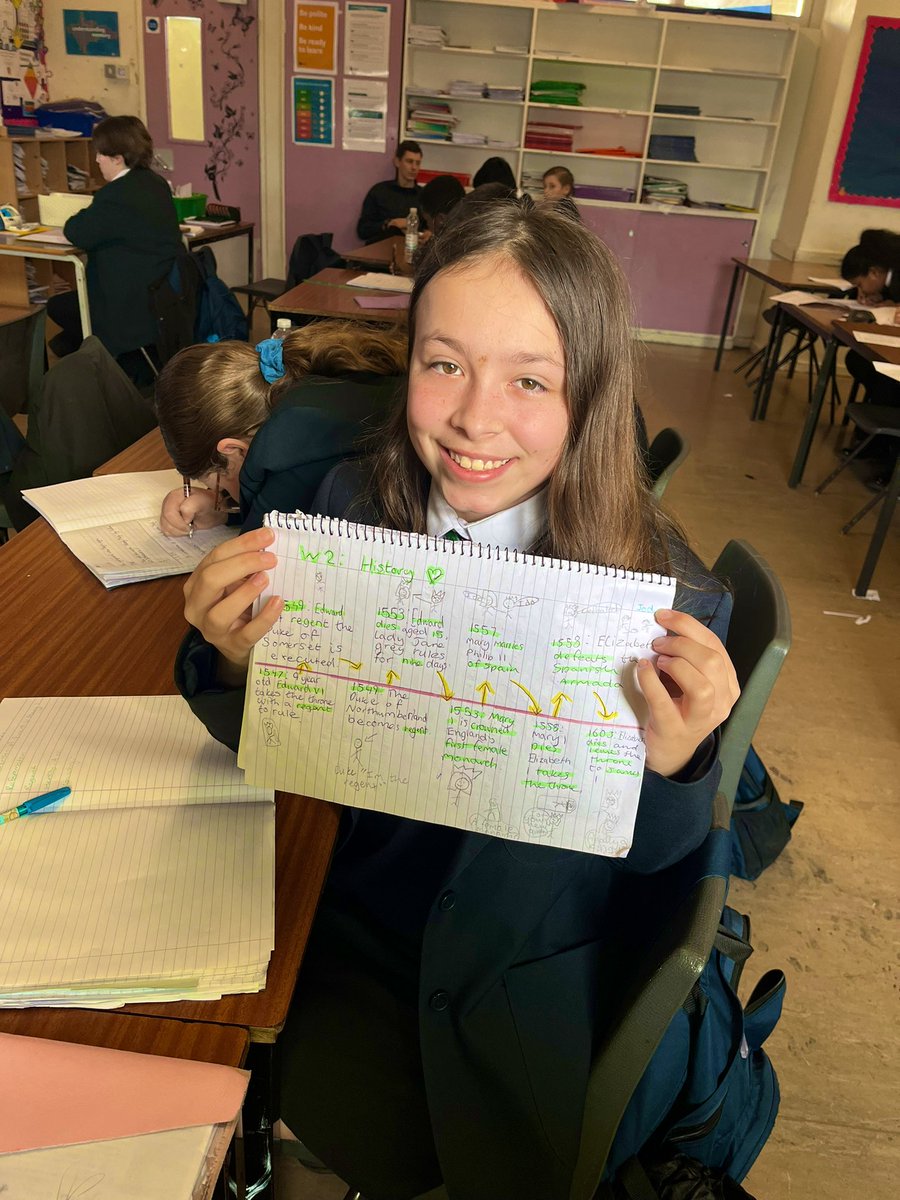 Be polite
Be kind
Be ready
to learn
W2: History
1549: Edward
regent the
Duke of
Somerset is
executed
1553 Edward
dies aged 15.
Lady Jane
grey rules
for nine days
1557
Mary marries
Philip II
of Spain
1558: Elizabeth
defeats the
Spanish
Armada
1547: 9 year
old Edward VI
takes the throne
with a regent
to rule
1549 The
Duke of
Northumberland
becomes regent
Duke "I'm the
regent"
1553: Mary
I is crowned
England's
first female
monarch
1558:
Mary I
Dies
Elizabeth
takes
the throne
1603: Elizabeth
dies and
leaves the
throne
to James